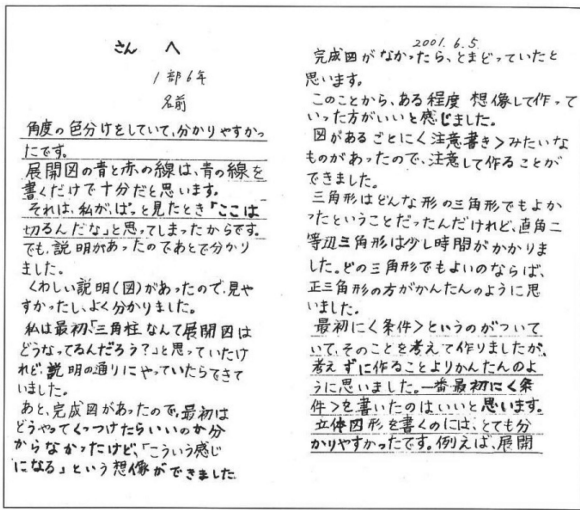 さん へ
1部6年
名前
角度の色分けをしていて、分かりやすかっ
たです。
展開図の青と赤の線は、青の線を
書くだけで十分だと思います。
それは、私が、ぱっと見たとき「ここは
切るんだな」と思ってしまったからです。
でも、説明があったのであとで分かり
ました。
くわしい説明(図)があったので、見や
すかったし、よく分かりました。
私は最初、「三角柱なんて展開図は
どうなってるんだろう?」と思っていたけ
れど、説明の通りにやっていたらできて
いました。
あと、完成図があったので、最初は
どうやってくっつけたらいいのか分
からなかったけど、「こういう感じ
になる」という想像ができました。
2001.6.5
完成図がなかったら、とまどっていたと
思います。
このことから、ある程度 想像して作って
いった方がいいと感じました。
図があるごとに<注意書き>みたいな
ものがあったので、注意して作ることが
できました。
三角形はどんな形の三角形でもよか
ったということだったんだけれど、直角二
等辺三角形は少し時間がかかりま
した。どの三角形でもよいのならば、
正三角形の方がかんたんのように思
いました。
最初に<条件>というのがついて
いて、そのことを考えて作りましたが、
考えずに作ることよりかんたんのよ
うに思いました。一番最初に<条
件>を書いたのはいいと思います。
立体図形を書くのには、とても分
かりやすかったです。例えば、展開